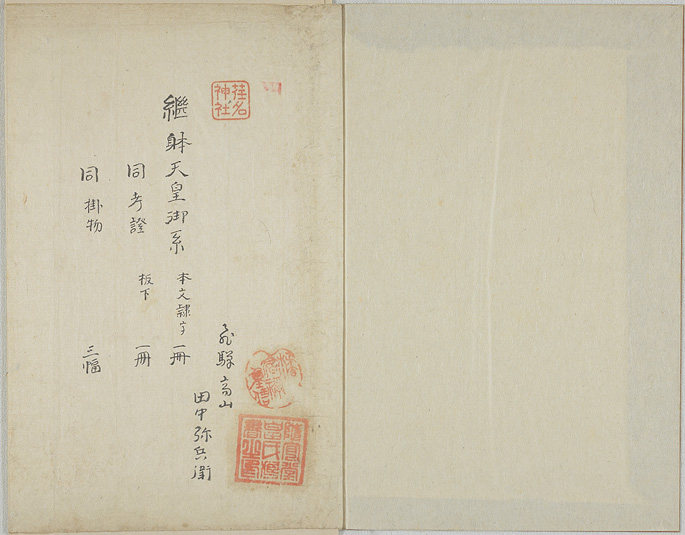 荏名神社
継躰天皇御系 本文隷字 一冊
同考證 板下 一冊
同掛物 三幅
飛騨高山
田中弥兵衛